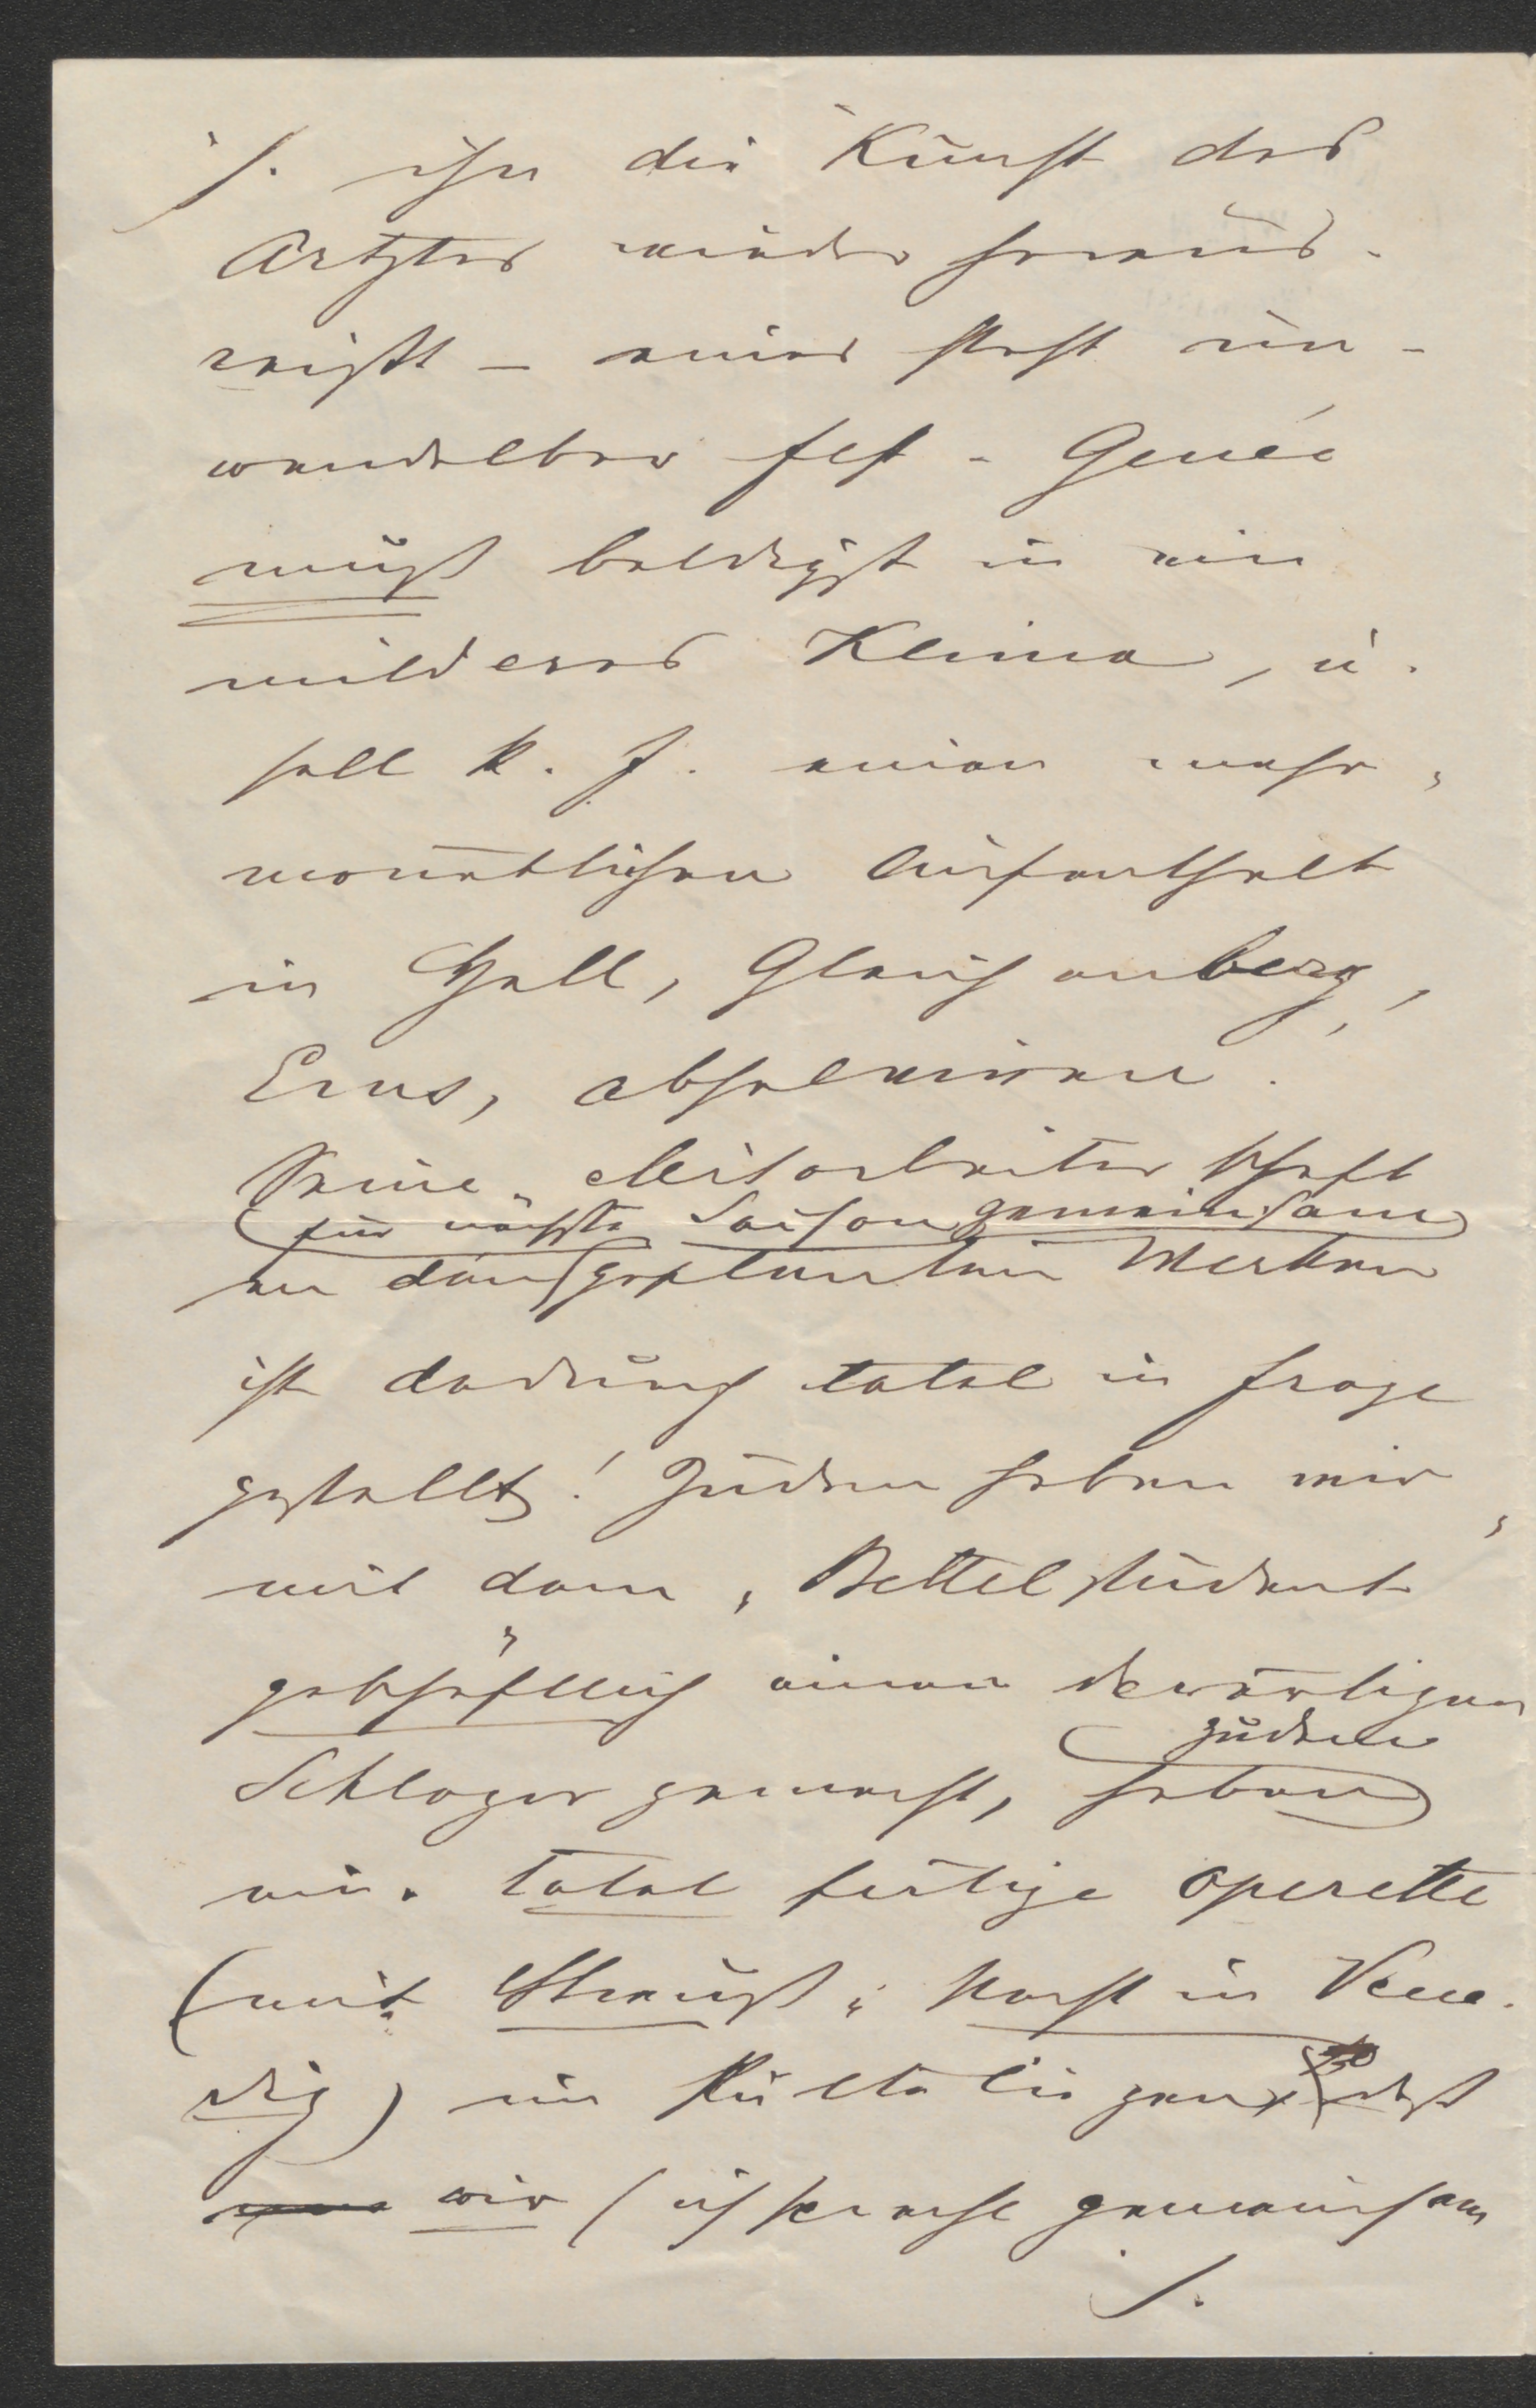 ./. ihn die Kunst des
Artztes wieder heraus-
reißt – eines steht un-
wandelbar fest - Genée
muß baldigst in ein
milderes Klima, u.
soll k. J. einen mehr-
monatlichen Aufenthalt
in Hall, Gleichenberg,
Ems, absolviren.
Seine Mitarbeiterschaft
für nächste Saison gemeinsam
an den geplanten Werken
ist dadurch total in Frage
gestellt! Zudem haben wir
mit dem „Bettelstudent“
geschäftlich einen derartigen
zudem
Schlager gemacht, haben
eine total fertige Operette
(mit Strauß „Nacht in Vene-
dig) im Pulte liegen, daß
wir (ich spreche gemeinsam
./.